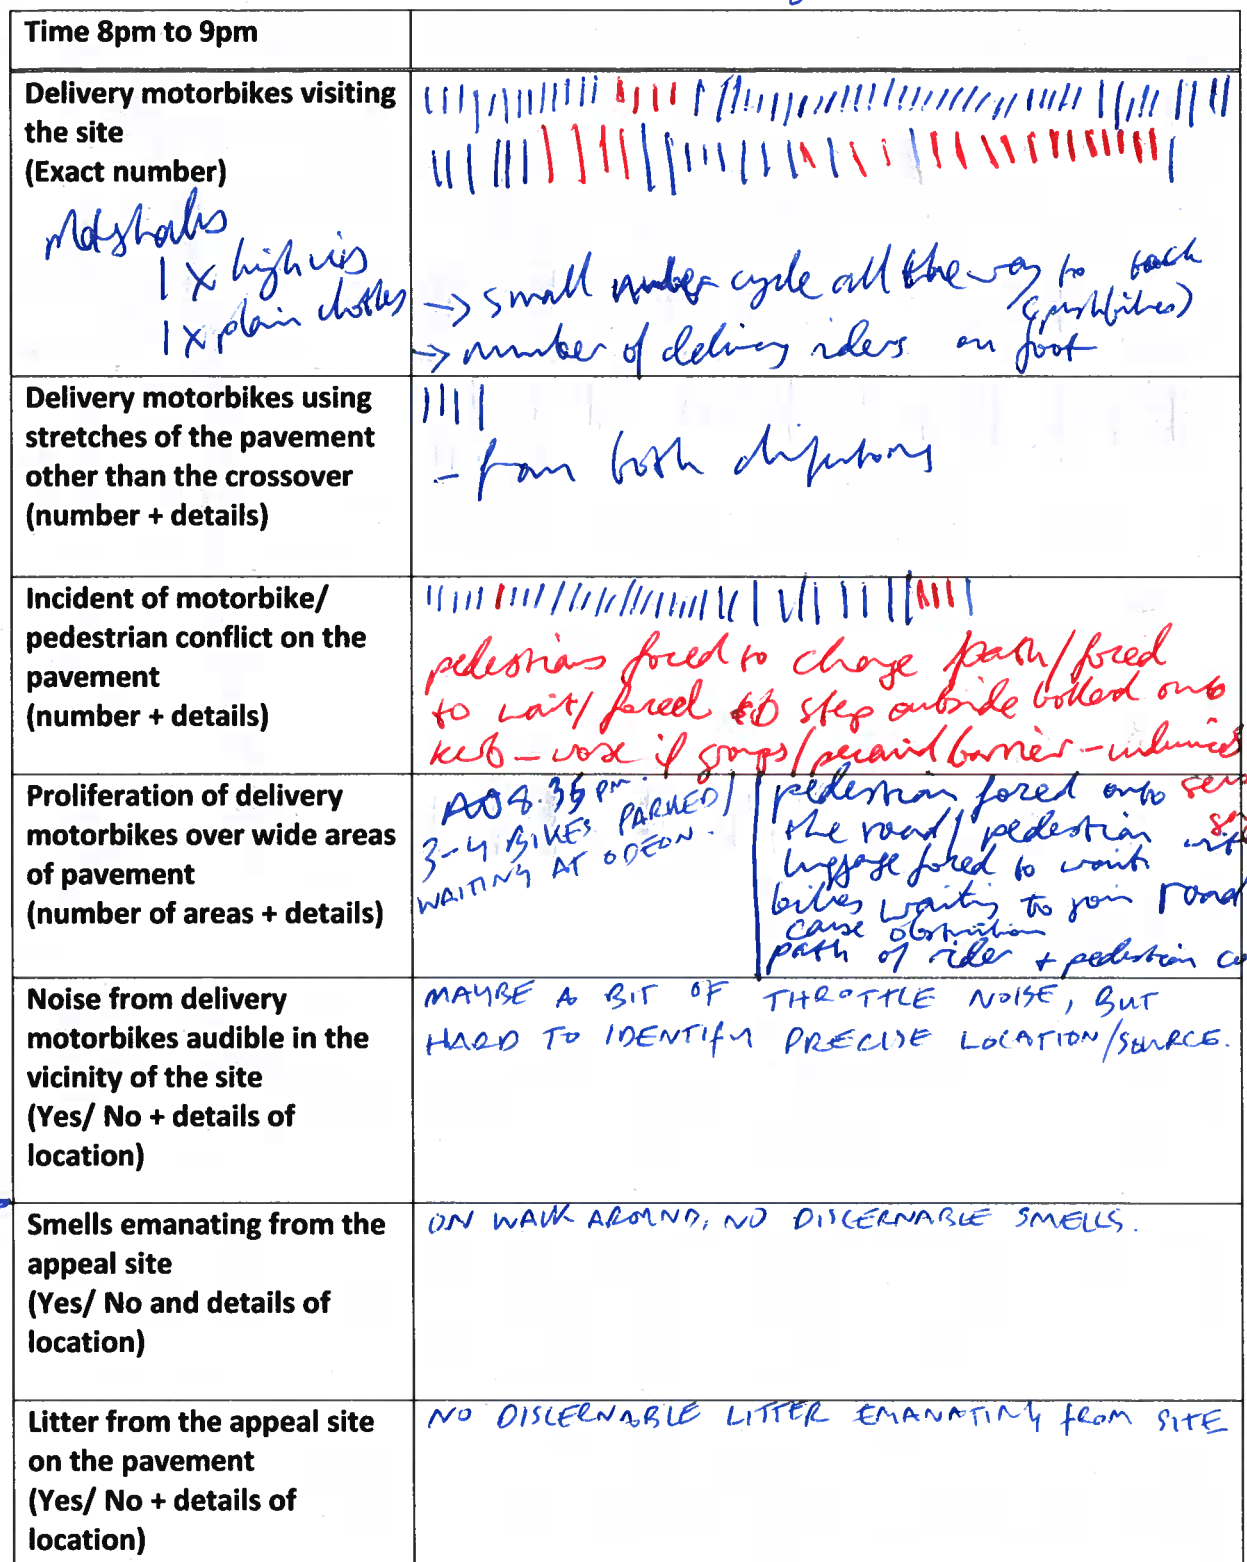 Time 8pm to 9pm
Delivery motorbikes visiting
the site
(Exact number)
Marshalls
1 x high vis
1 x plain clothes
→ small number cycle all the way to back
(pushbikes)
→ number of delivery riders on foot
Delivery motorbikes using
stretches of the pavement
other than the crossover
(number + details)
||||
- from both directions
Incident of motorbike/
pedestrian conflict on the
pavement
(number + details)
pedestrians forced to change path/forced
to wait/forced to step outside bollard onto
kerb - worse if groups/
barrier -
Proliferation of delivery
motorbikes over wide areas
of pavement
(number of areas + details)
8.35 pm.
3-4 BIKES PARKED/
WAITING AT ODEON.
pedestrian forced onto
the road/pedestrian with
luggage forced to wait
bikes waiting to join road
cause obstruction
path of rider + pedestrian
Noise from delivery
motorbikes audible in the
vicinity of the site
(Yes/ No + details of
location)
MAYBE A BIT OF THROTTLE NOISE, BUT
HARD TO IDENTIFY PRECISE LOCATION/SOURCE.
Smells emanating from the
appeal site
(Yes/ No and details of
location)
ON WALK AROUND, NO DISCERNABLE SMELLS.
Litter from the appeal site
on the pavement
(Yes/ No + details of
location)
NO DISCERNABLE LITTER EMANATING FROM SITE